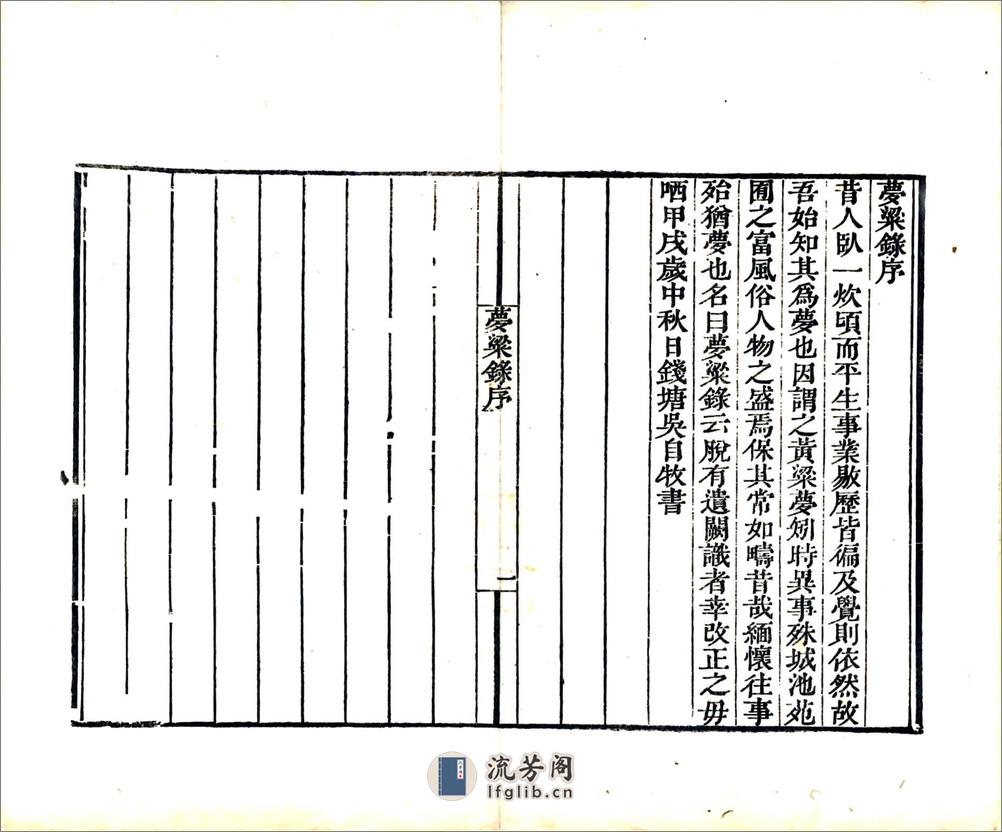 夢粱錄序
昔人臥一炊頃而平生事業敭歷皆徧及覺則依然故
吾始知其爲夢也因謂之黃粱夢矧時異事殊城池苑
囿之富風俗人物之盛焉保其常如疇昔哉緬懷往事
殆猶夢也名曰夢粱錄云脫有遺闕識者幸改正之毋
哂甲戌歲中秋日錢塘吳自牧書
夢粱錄序
一
流芳阁
lfglib.cn